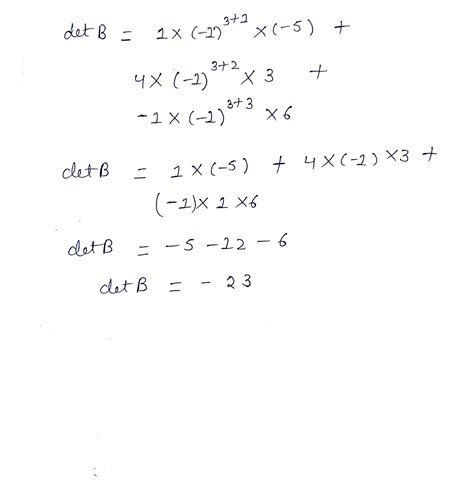 det B = 1 × (-1)^{3+1} × (-5) +
4 × (-1)^{3+2} × 3 +
-1 × (-1)^{3+3} × 6
det B = 1 × (-5) + 4 × (-1) × 3 +
(-1) × 1 × 6
det B = -5 -12 - 6
det B = - 23